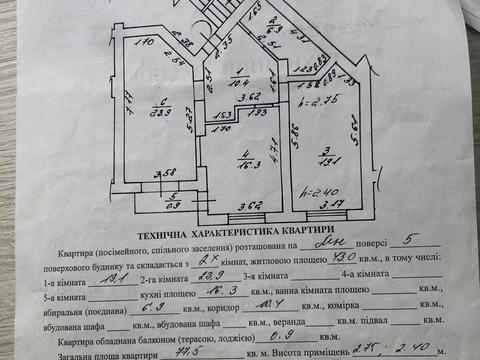 1.65
2
6.9
4.31
1.70
2.38
2.54
2.35
2.51
2.51
1
10.4
1.61
1.23
0.89
1.58
0.89
1.33
h=2.75
4.17
6
23.9
5.27
3.62
1.53
1.93
1.70
4
16.3
4.71
5.86
3
19.1
5.61
3.58
5
0.9
3.62
h=2.40
3.17
ТЕХНІЧНА ХАРАКТЕРИСТИКА КВАРТИРИ
Квартира (посімейного, спільного заселення) розташована на поверсі 5
поверхового будинку та складається з 2х кімнат, житловою площею 43.0 кв.м, в тому числі:
1-а кімната 19.1 2-га кімната 23.9 3-я кімната 4-а кімната
5-а кімната кухні площею 16.3 кв.м., ванна кімната кв.м.,
вбиральня (поєднана) 6.9 кв.м., коридор 10.4 кв.м., комірка кв.м.,
вбудована шафа кв.м., вбудована шафа кв.м., веранда кв.м. підвал кв.м.
Квартира обладнана балконом (терасою, лоджією) 0.9 кв.м.
Загальна площа квартири 77.5 кв. м. Висота приміщень 2.75; 2.40 м.